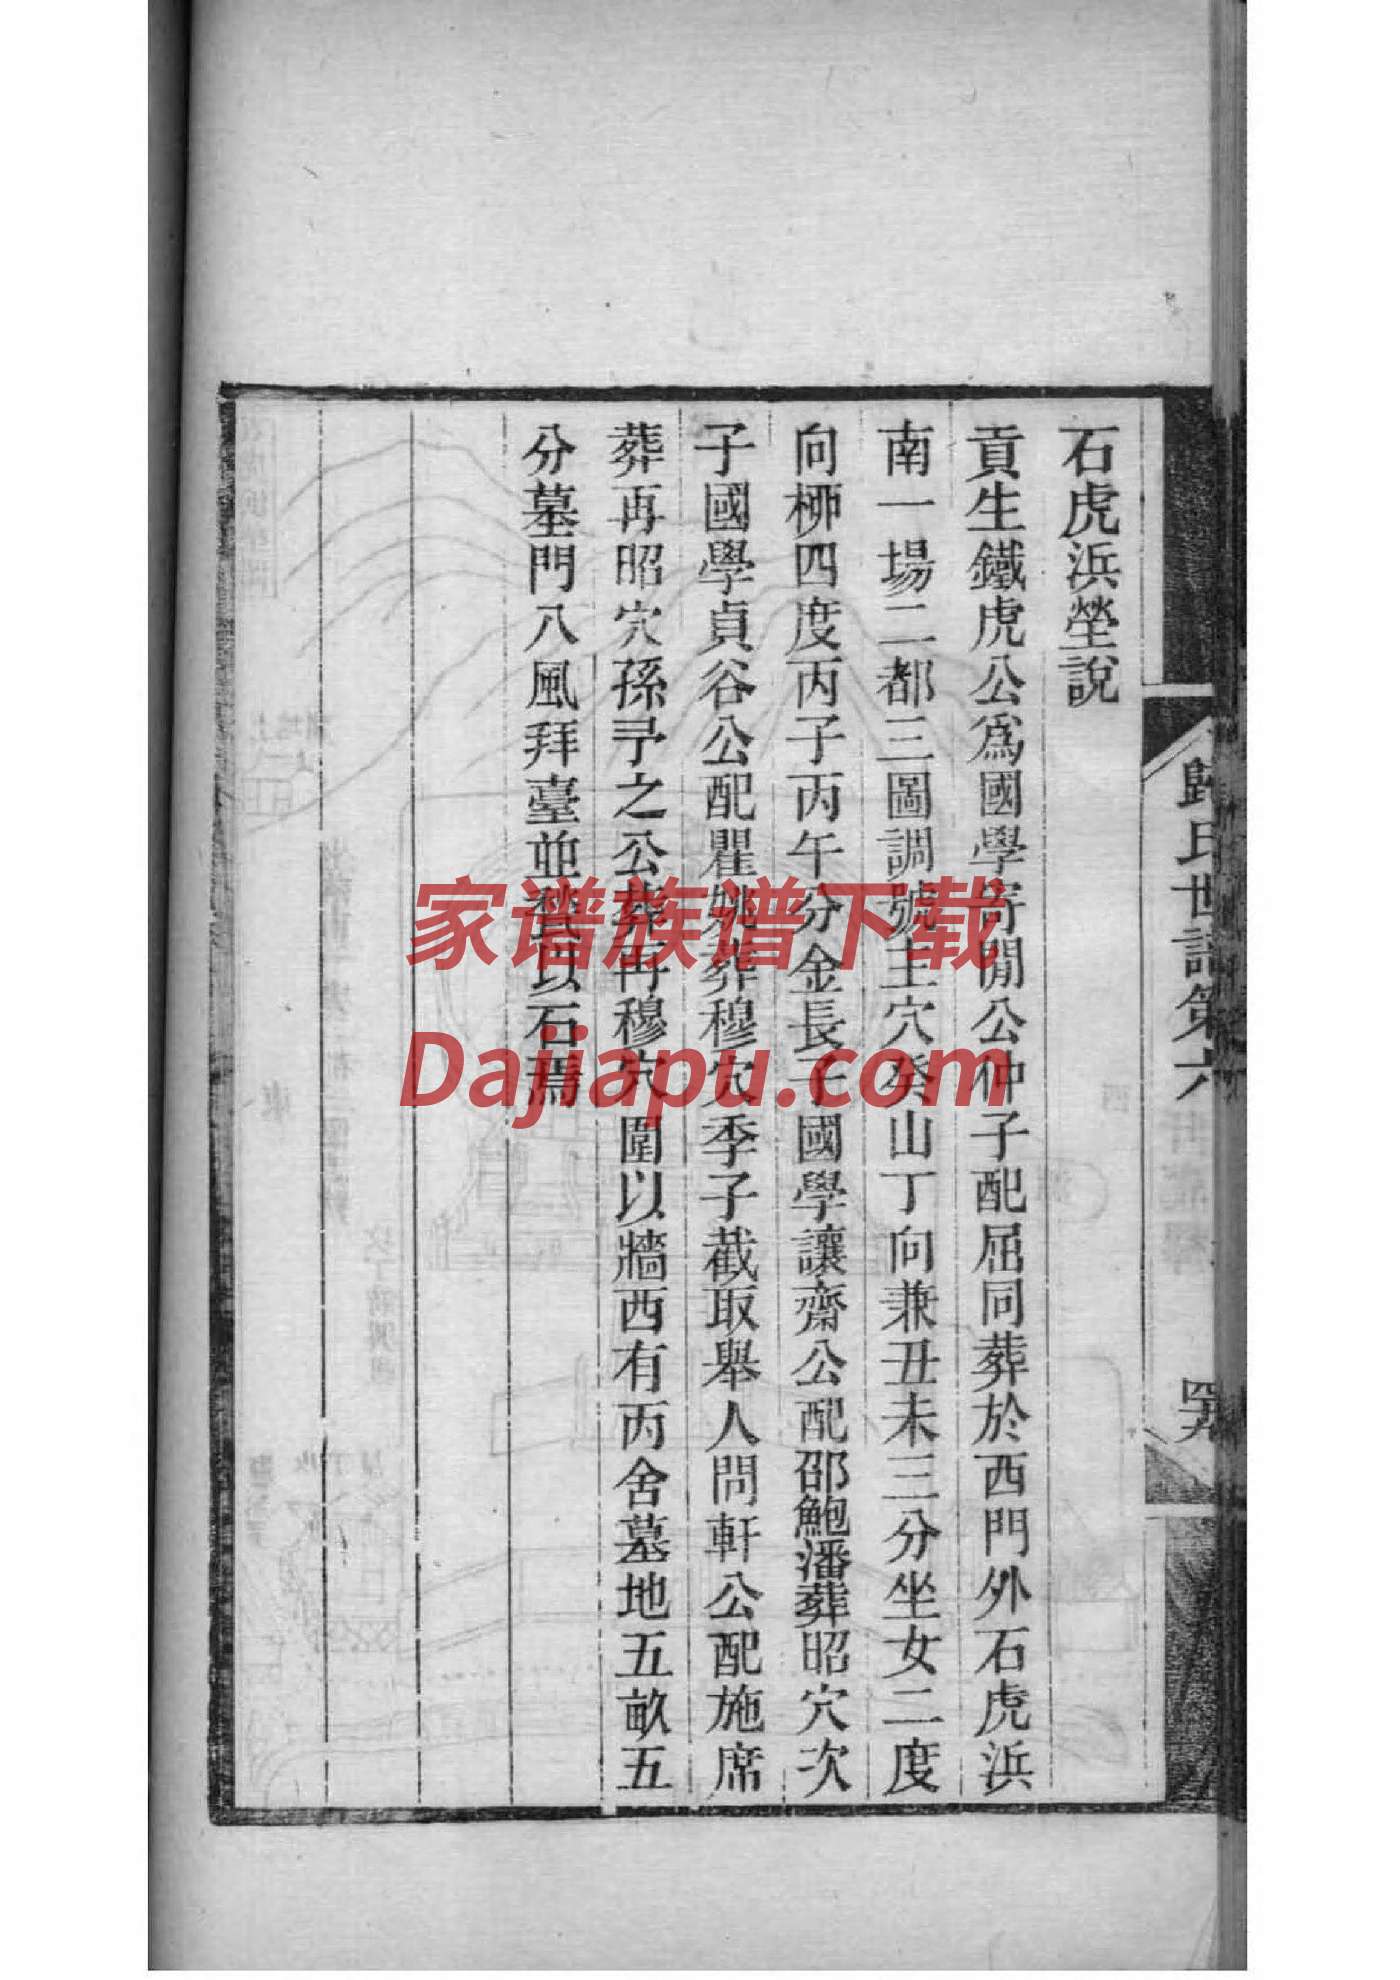 石虎浜塋說
貢生鐵虎公爲國學寄閒公仲子配屈同葬於西門外石虎浜
南一場二都三圖調號主穴癸山丁向兼丑未三分坐女二度
向栁四度丙子丙午分金長子國學讓齋公配邵鮑潘葬昭穴次
子國學貞谷公配瞿姚葬穆穴季子截取舉人問軒公配施席
葬再昭穴孫予之公葬再穆穴圍以牆西有丙舍墓地五畝五
分墓門八風拜臺並甃以石焉
歸氏世譜第六
四九
家谱族谱下载
Dajiapu.com